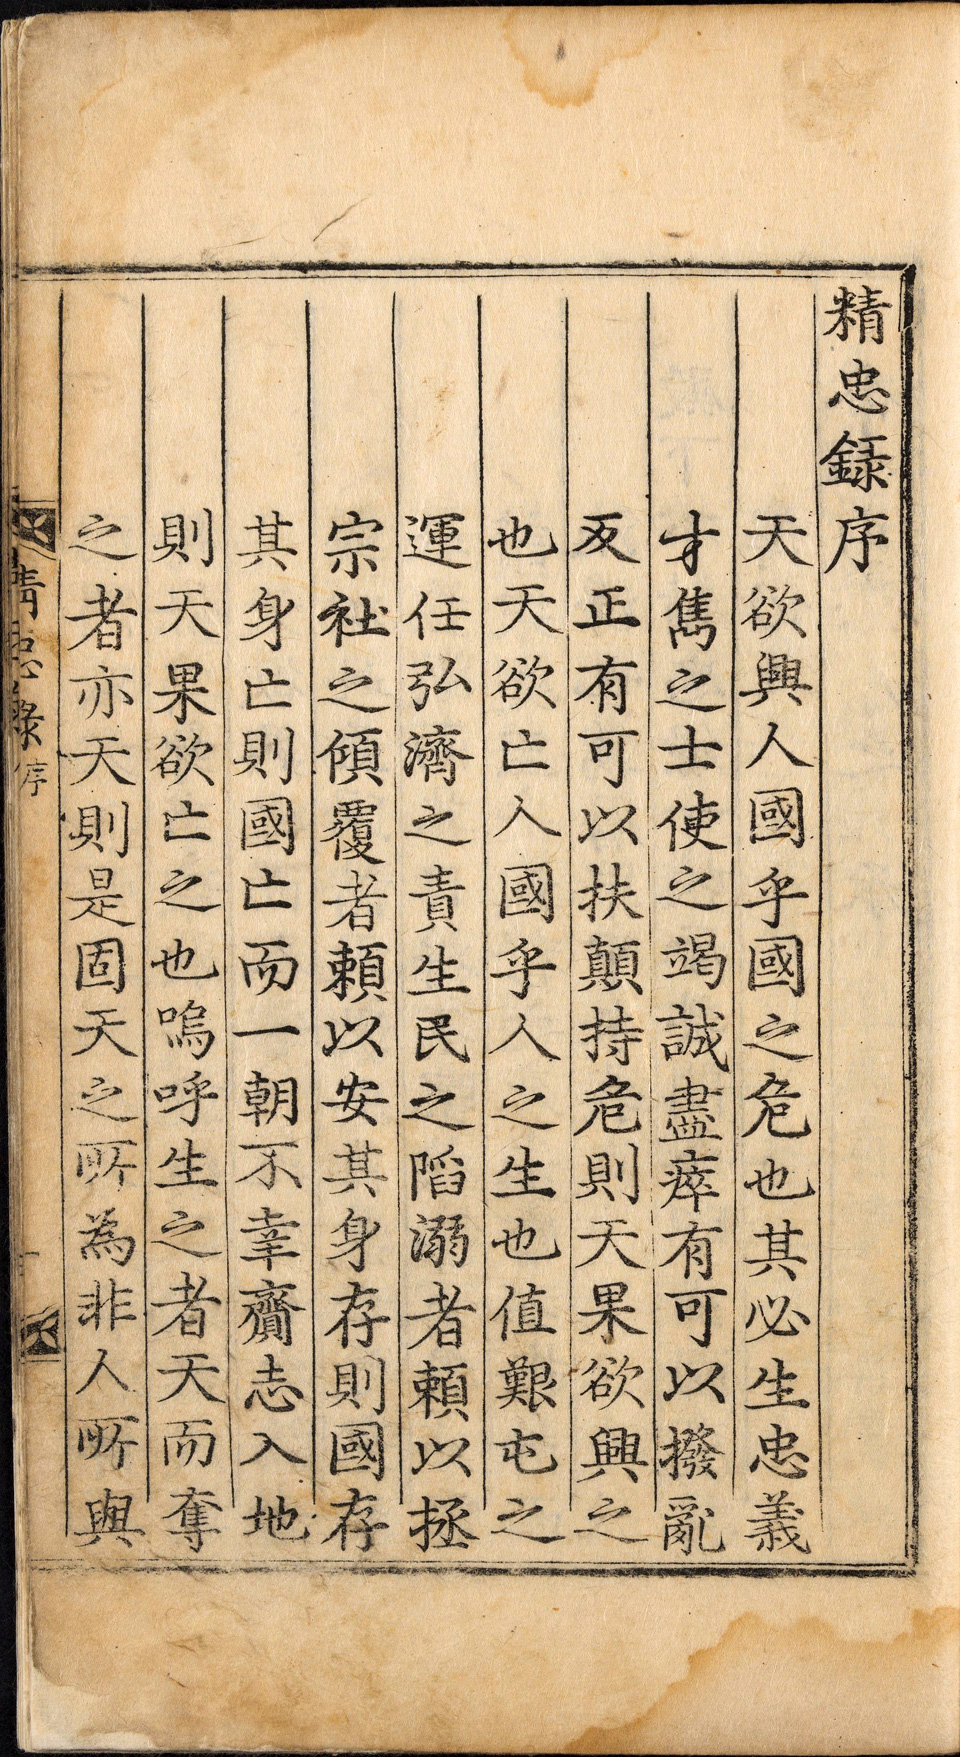 精忠録序
天欲興人國乎國之危也其必生忠義
才雋之士使之竭誠盡瘁有可以撥亂
反正有可以扶顛持危則天果欲興之
也天欲亡人國乎人之生也值艱屯之
運任弘濟之責生民之䧟溺者頼以拯
宗社之傾覆者頼以安其身存則國存
其身亡則國亡而一朝不幸齎志入地
則天果欲亡之也嗚呼生之者天而奪
之者亦天則是固天之所為非人所與
精忠錄序